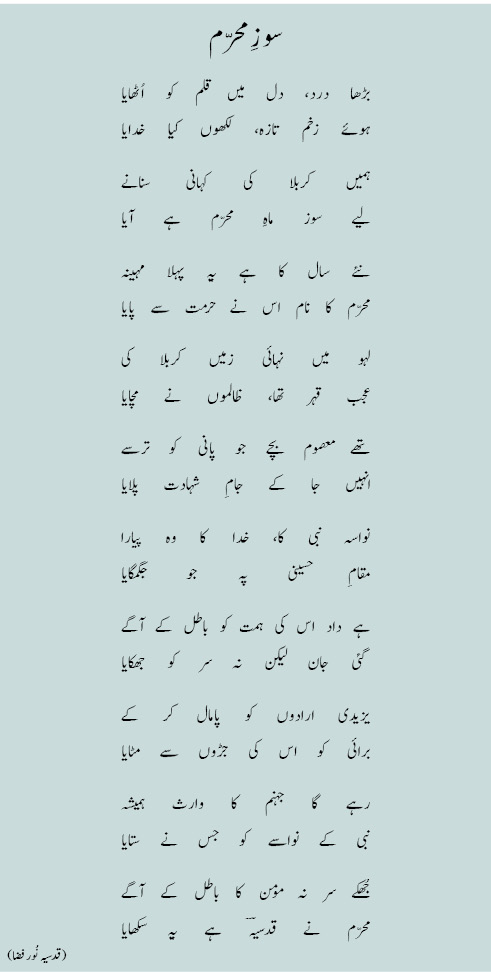 سوزِ محرّم
بڑھا درد، دل میں قلم کو اُٹھایا
ہوئے زخم تازہ، لکھوں کیا خدایا
ہمیں کربلا کی کہانی سنانے
لیے سوز ماہِ محرّم ہے آیا
نئے سال کا ہے یہ پہلا مہینہ
محرّم کا نام اس نے حرمت سے پایا
لہو میں نہائی زمیں کربلا کی
عجب قہر تھا، ظالموں نے مچایا
تھے معصوم بچے جو پانی کو ترسے
انہیں جا کے جامِ شہادت پلایا
نواسہ نبی کا، خدا کا وہ پیارا
مقامِ حسینی پہ جو جگمگایا
ہے داد اس کی ہمت کو باطل کے آگے
گئی جان لیکن نہ سر کو جھکایا
یزیدی ارادوں کو پامال کر کے
برائی کو اس کی جڑوں سے مٹایا
رہے گا جہنم کا وارث ہمیشہ
نبی کے نواسے کو جس نے ستایا
جُھکے سر نہ مؤمن کا باطل کے آگے
محرّم نے قدسیہؔ ہے یہ سکھایا
(قدسیہ نُور فضا)